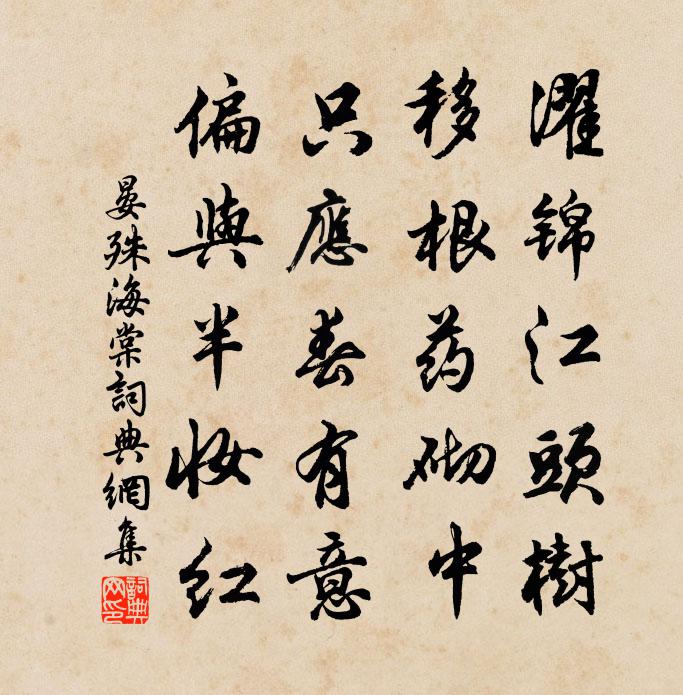 濯錦江頭樹
移根药砌中
只應春有意
偏與半妝红
晏殊海棠詞典網集
詞典网印